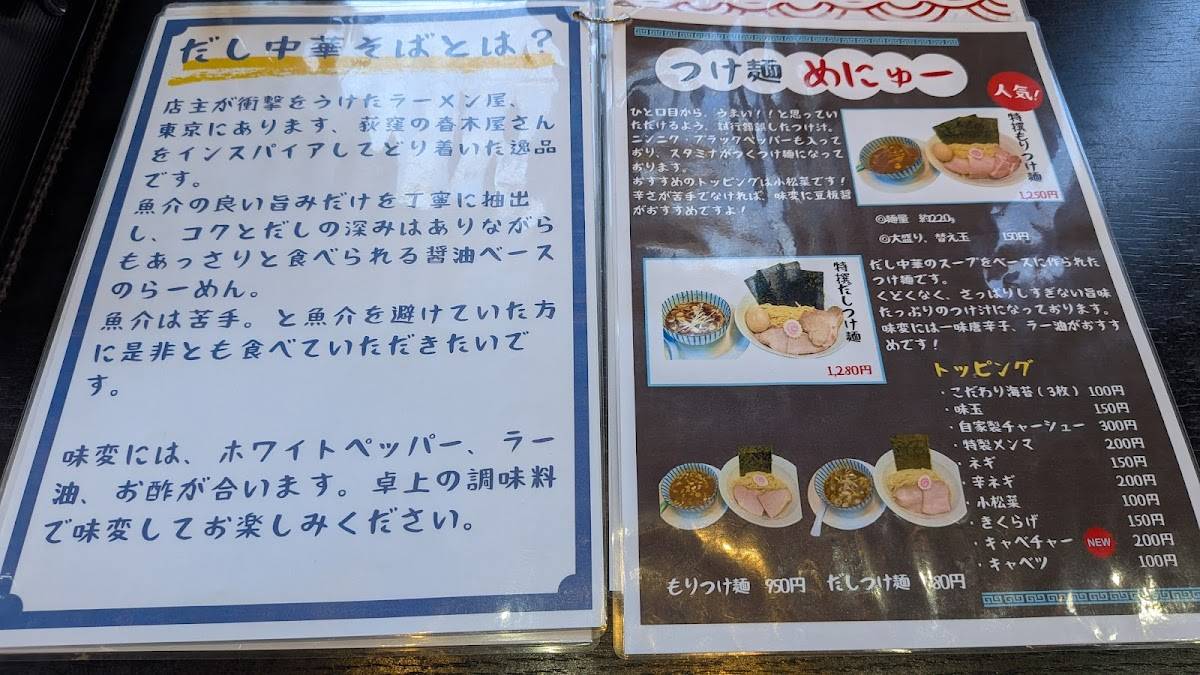 だし中華そばとは？
店主が衝撃をうけたラーメン屋、
東京にあります、荻窪の春木屋さん
をインスパイアしてどり着いた逸品
です。
魚介の良い旨みだけを丁寧に抽出
し、コクとだしの深みはありながら
もあっさりと食べられる醤油ベース
のらーめん。
魚介は苦手。と魚介を避けていた方
に是非とも食べていただきたいで
す。
味変には、ホワイトペッパー、ラー
油、お酢が合います。卓上の調味料
で味変してお楽しみください。
つけ麺 めにゅー
人気!
ひと口目から、うまい！！と思ってい
ただけるよう、試行錯誤したつけ汁。
ニンニク・ブラックペッパーも入って
おり、スタミナがつくつけ麺になって
おります。
おすすめのトッピングは小松菜です！
辛さが苦手でなければ、味変に豆板醤
がおすすめですよ！
特撰もりつけ麺
1,250円
◎麺量 約220g
◎大盛り、替え玉 150円
特撰だしつけ麺
1,280円
だし中華のスープをベースに作られた
つけ麺です。
くどくなく、さっぱりしすぎない旨味
たっぷりのつけ汁になっております。
味変には一味唐辛子、ラー油がおすす
めです！
トッピング
・こだわり海苔(3枚) 100円
・味玉 150円
・自家製チャーシュー 300円
・特製メンマ 200円
・ネギ 150円
・辛ネギ 200円
・小松菜 100円
・きくらげ 150円
・キャベチャー NEW 200円
・キャベツ 100円
もりつけ麺 950円 だしつけ麺